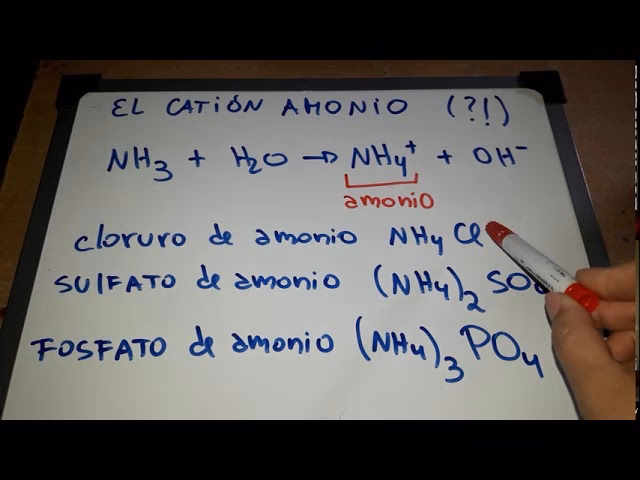 EL CATIÓN AMONIO (?!)
NH3 + H2O → NH4+ + OH-
amonio
cloruro de amonio NH4 Cl
SULFATO de amonio (NH4)2 SO4
FOSFATO de amonio (NH4)3 PO4